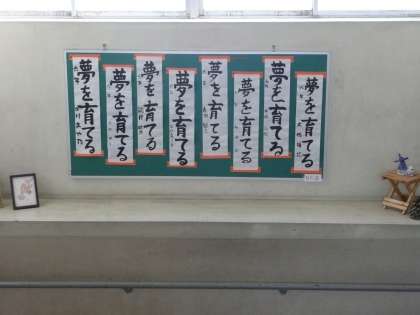 夢を育てる
夢を育てる
夢を育てる
夢を育てる
夢を育てる
夢を育てる
夢を育てる
夢を育てる